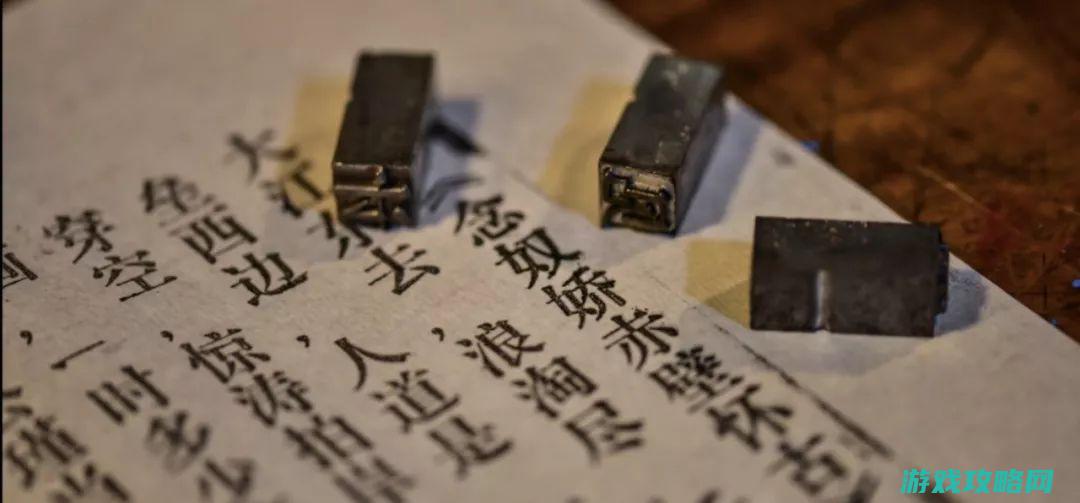 念奴娇赤壁怀古
大江东去，浪淘尽
垒西边，人道是
穿空，惊涛拍岸
画，一时多少
公瑾当
游戏攻略网